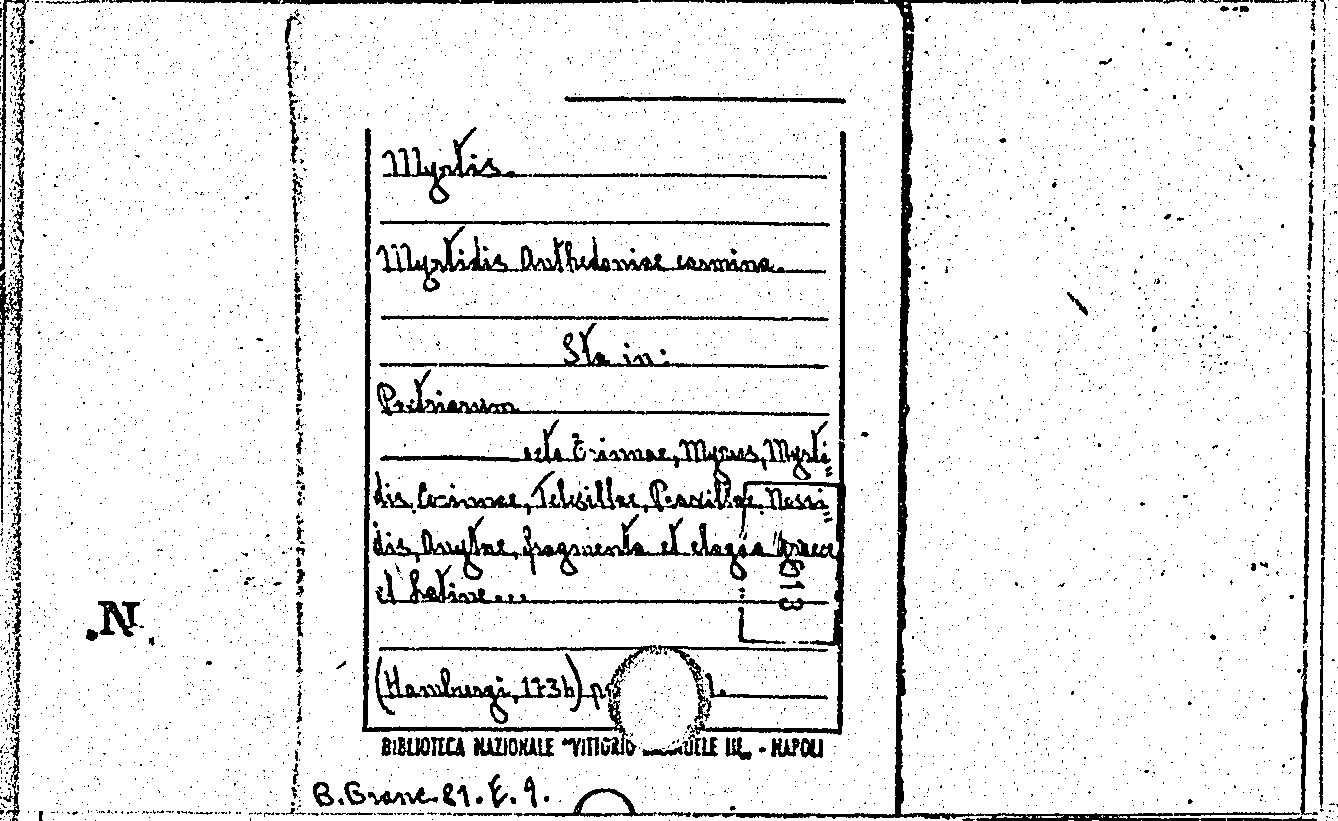 Myrtis.
Myrtidis Anthedoniae carmina.
Sta in:
Poetriarum
octo Erinnae, Myrus, Myrti=
dis, Corinnae, Telesillae, Praxillae, Nossi=
dis, Anytae, fragmenta et elogia graece
et latine...
613
(Hamburgi, 1734)
BIBLIOTECA NAZIONALE "VITTORIO EMANUELE III" - NAPOLI
B. Branc. 81. E. 9.
N.